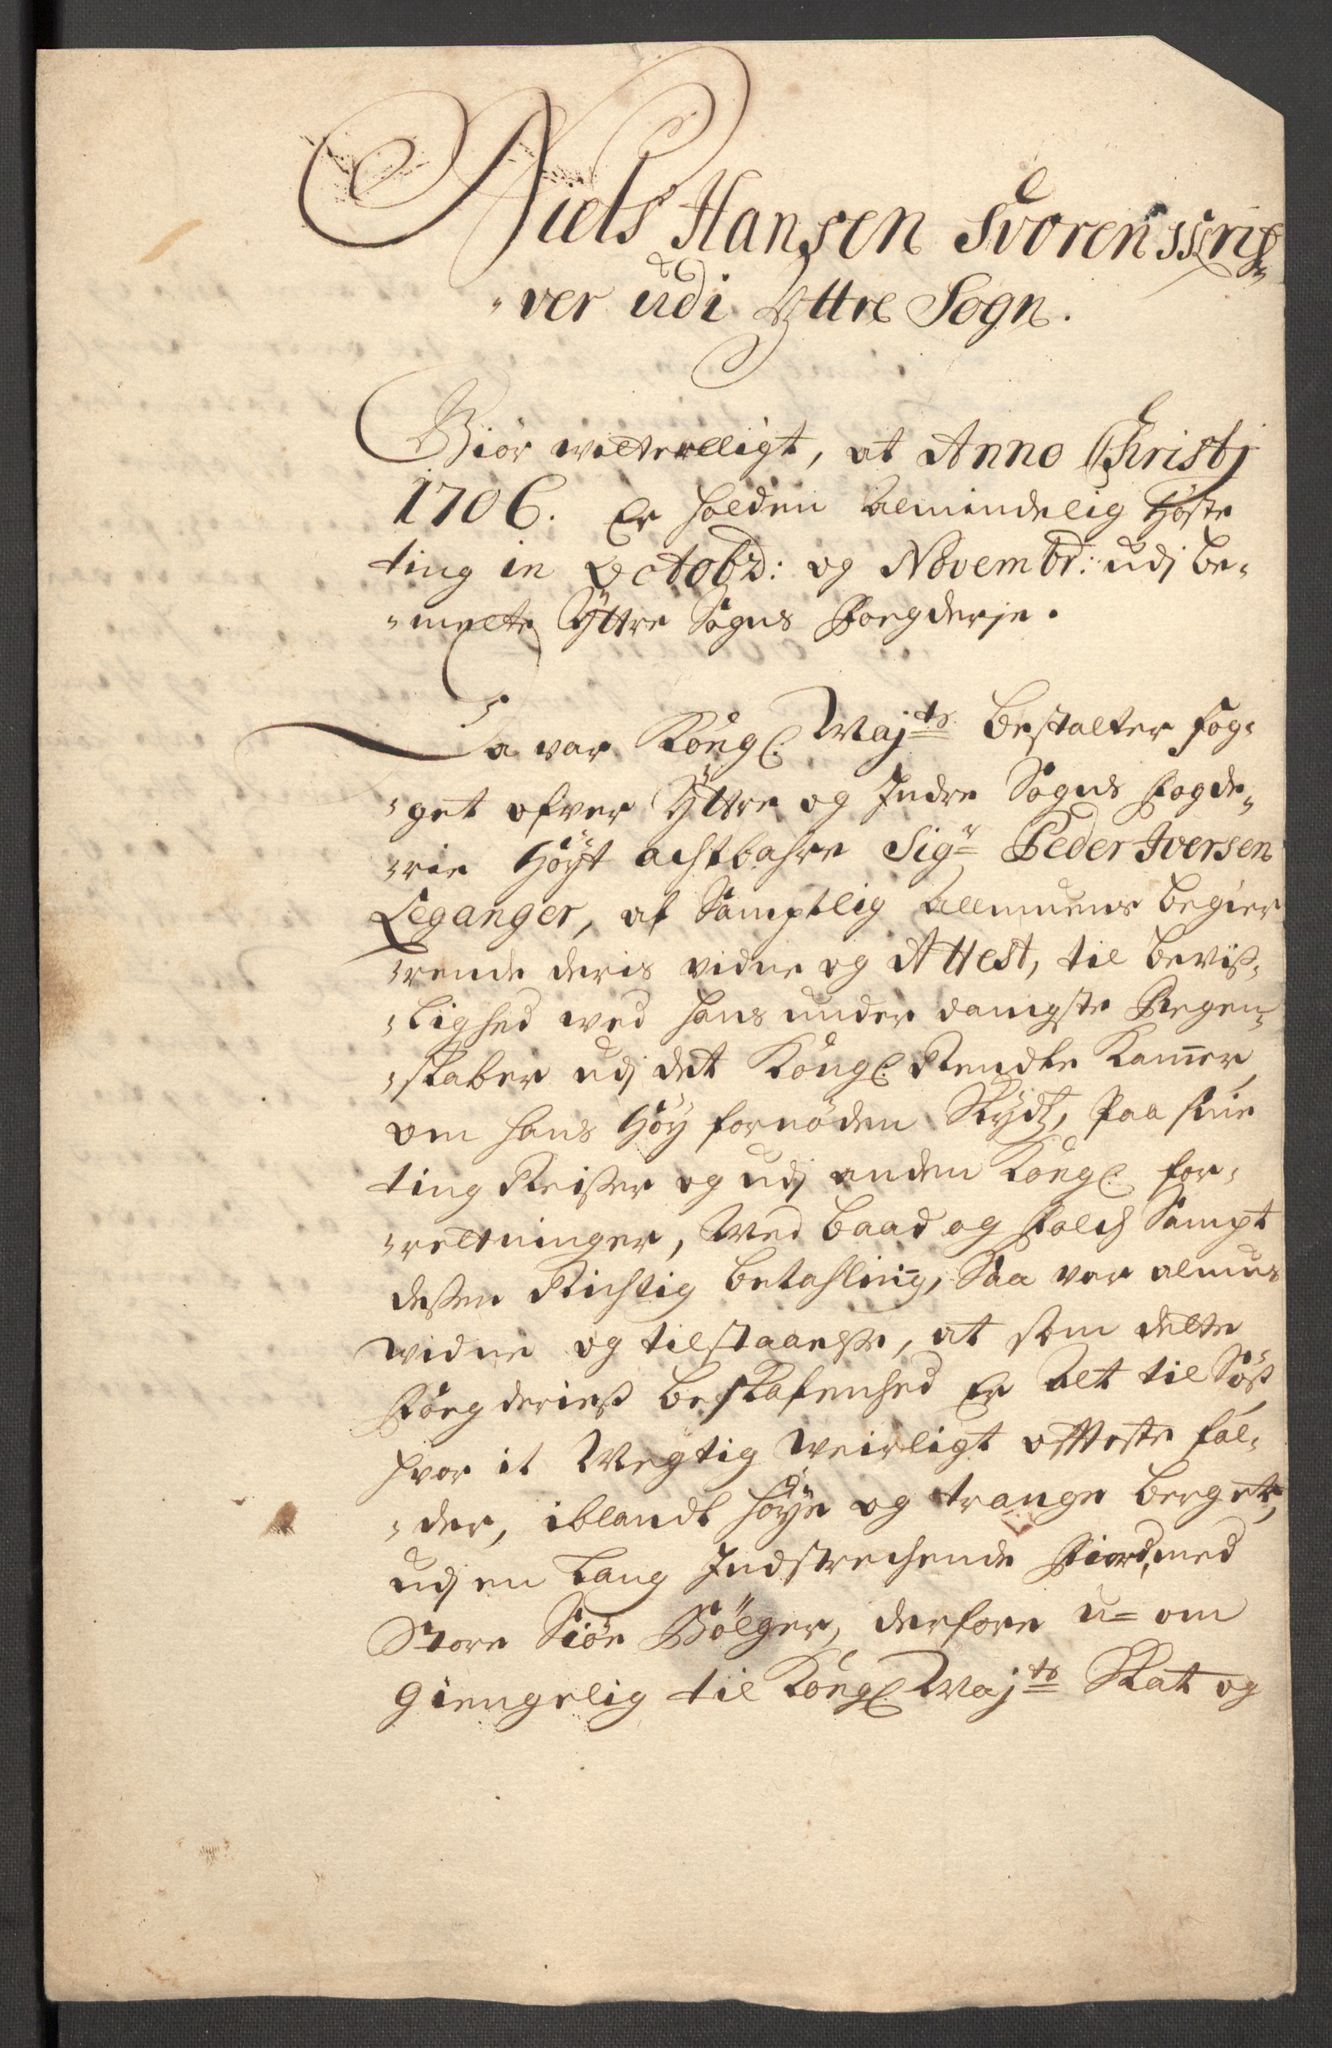 Niels Hansen Svorensskrif-
-ver udi Yttre Sogn.
Giör witterligt, at Anno Christj
1706. Er holden Almindelig Höste
ting in Octobr: og Novembr: udj be-
-melte Yttre Sogns Foegderje.
Da var Kongl. Majts bestalter fog-
-get ofver Yttre og Indre Sogns fogde-
-rie Höyt achtbahre Sigr Peder Iversen
Leganger, af Samptlig Allmuens begier
-rende deris vidne og Attest, til beviß-
-lighed wed hans under danigste Regen-
-skaber udj det Kongl. Rendte Kamer,
om hans Höy fornöden Skydtz, Paa sine
ting Reißer og udj anden Kongl. for-
-rettninger, Med baad og Folch Sampt
deßen Richtig betahling, Saa var almus
widne og tilstaaelße, at som dette
Foegderieß beskafenhed Er Alt til Söeß
hvor it Megtig Weirligt offteste fal-
-der, iblandt höye og trange berget,
udj en Lang Indstrechende Fiord, med
Store Siöe Bölger, derfore u-om
giengelig til Kongl. Majts Skat og